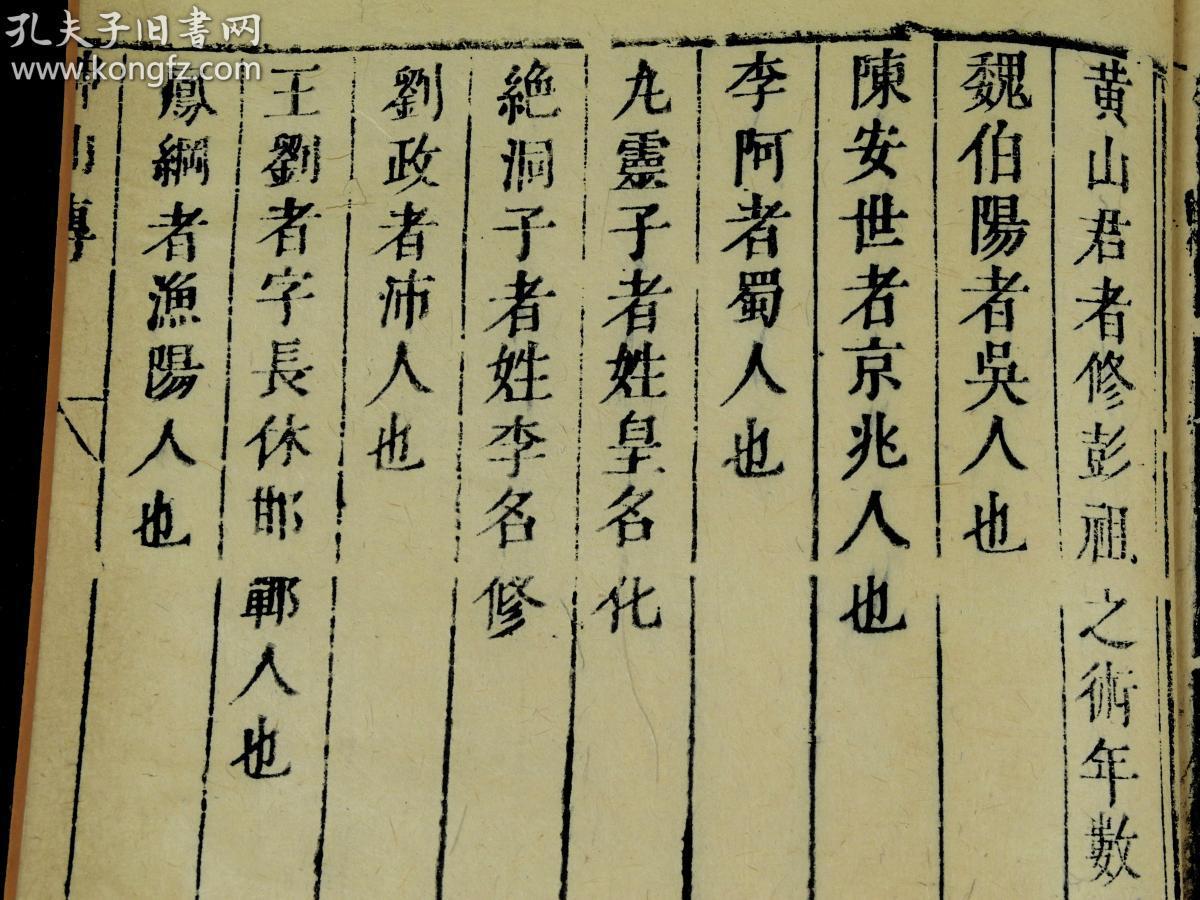 孔夫子旧书网
www.kongfz.com
黄山君者修彭祖之術年數
魏伯陽者吳人也
陳安世者京兆人也
李阿者蜀人也
九靈子者姓皇名化
絶洞子者姓李名修
劉政者沛人也
王劉者字長休邯鄲人也
鳳綱者漁陽人也